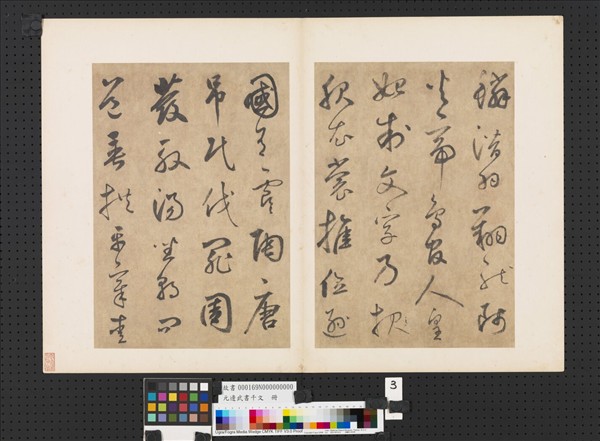 鱗潛羽翔龍師
火帝鳥官人皇
始制文字乃
服衣裳推位遜
國有虞陶唐
弔民伐罪周
發殷湯坐朝問
道垂拱平章愛
故書 000169N000000000
元邊武書千文 冊
3